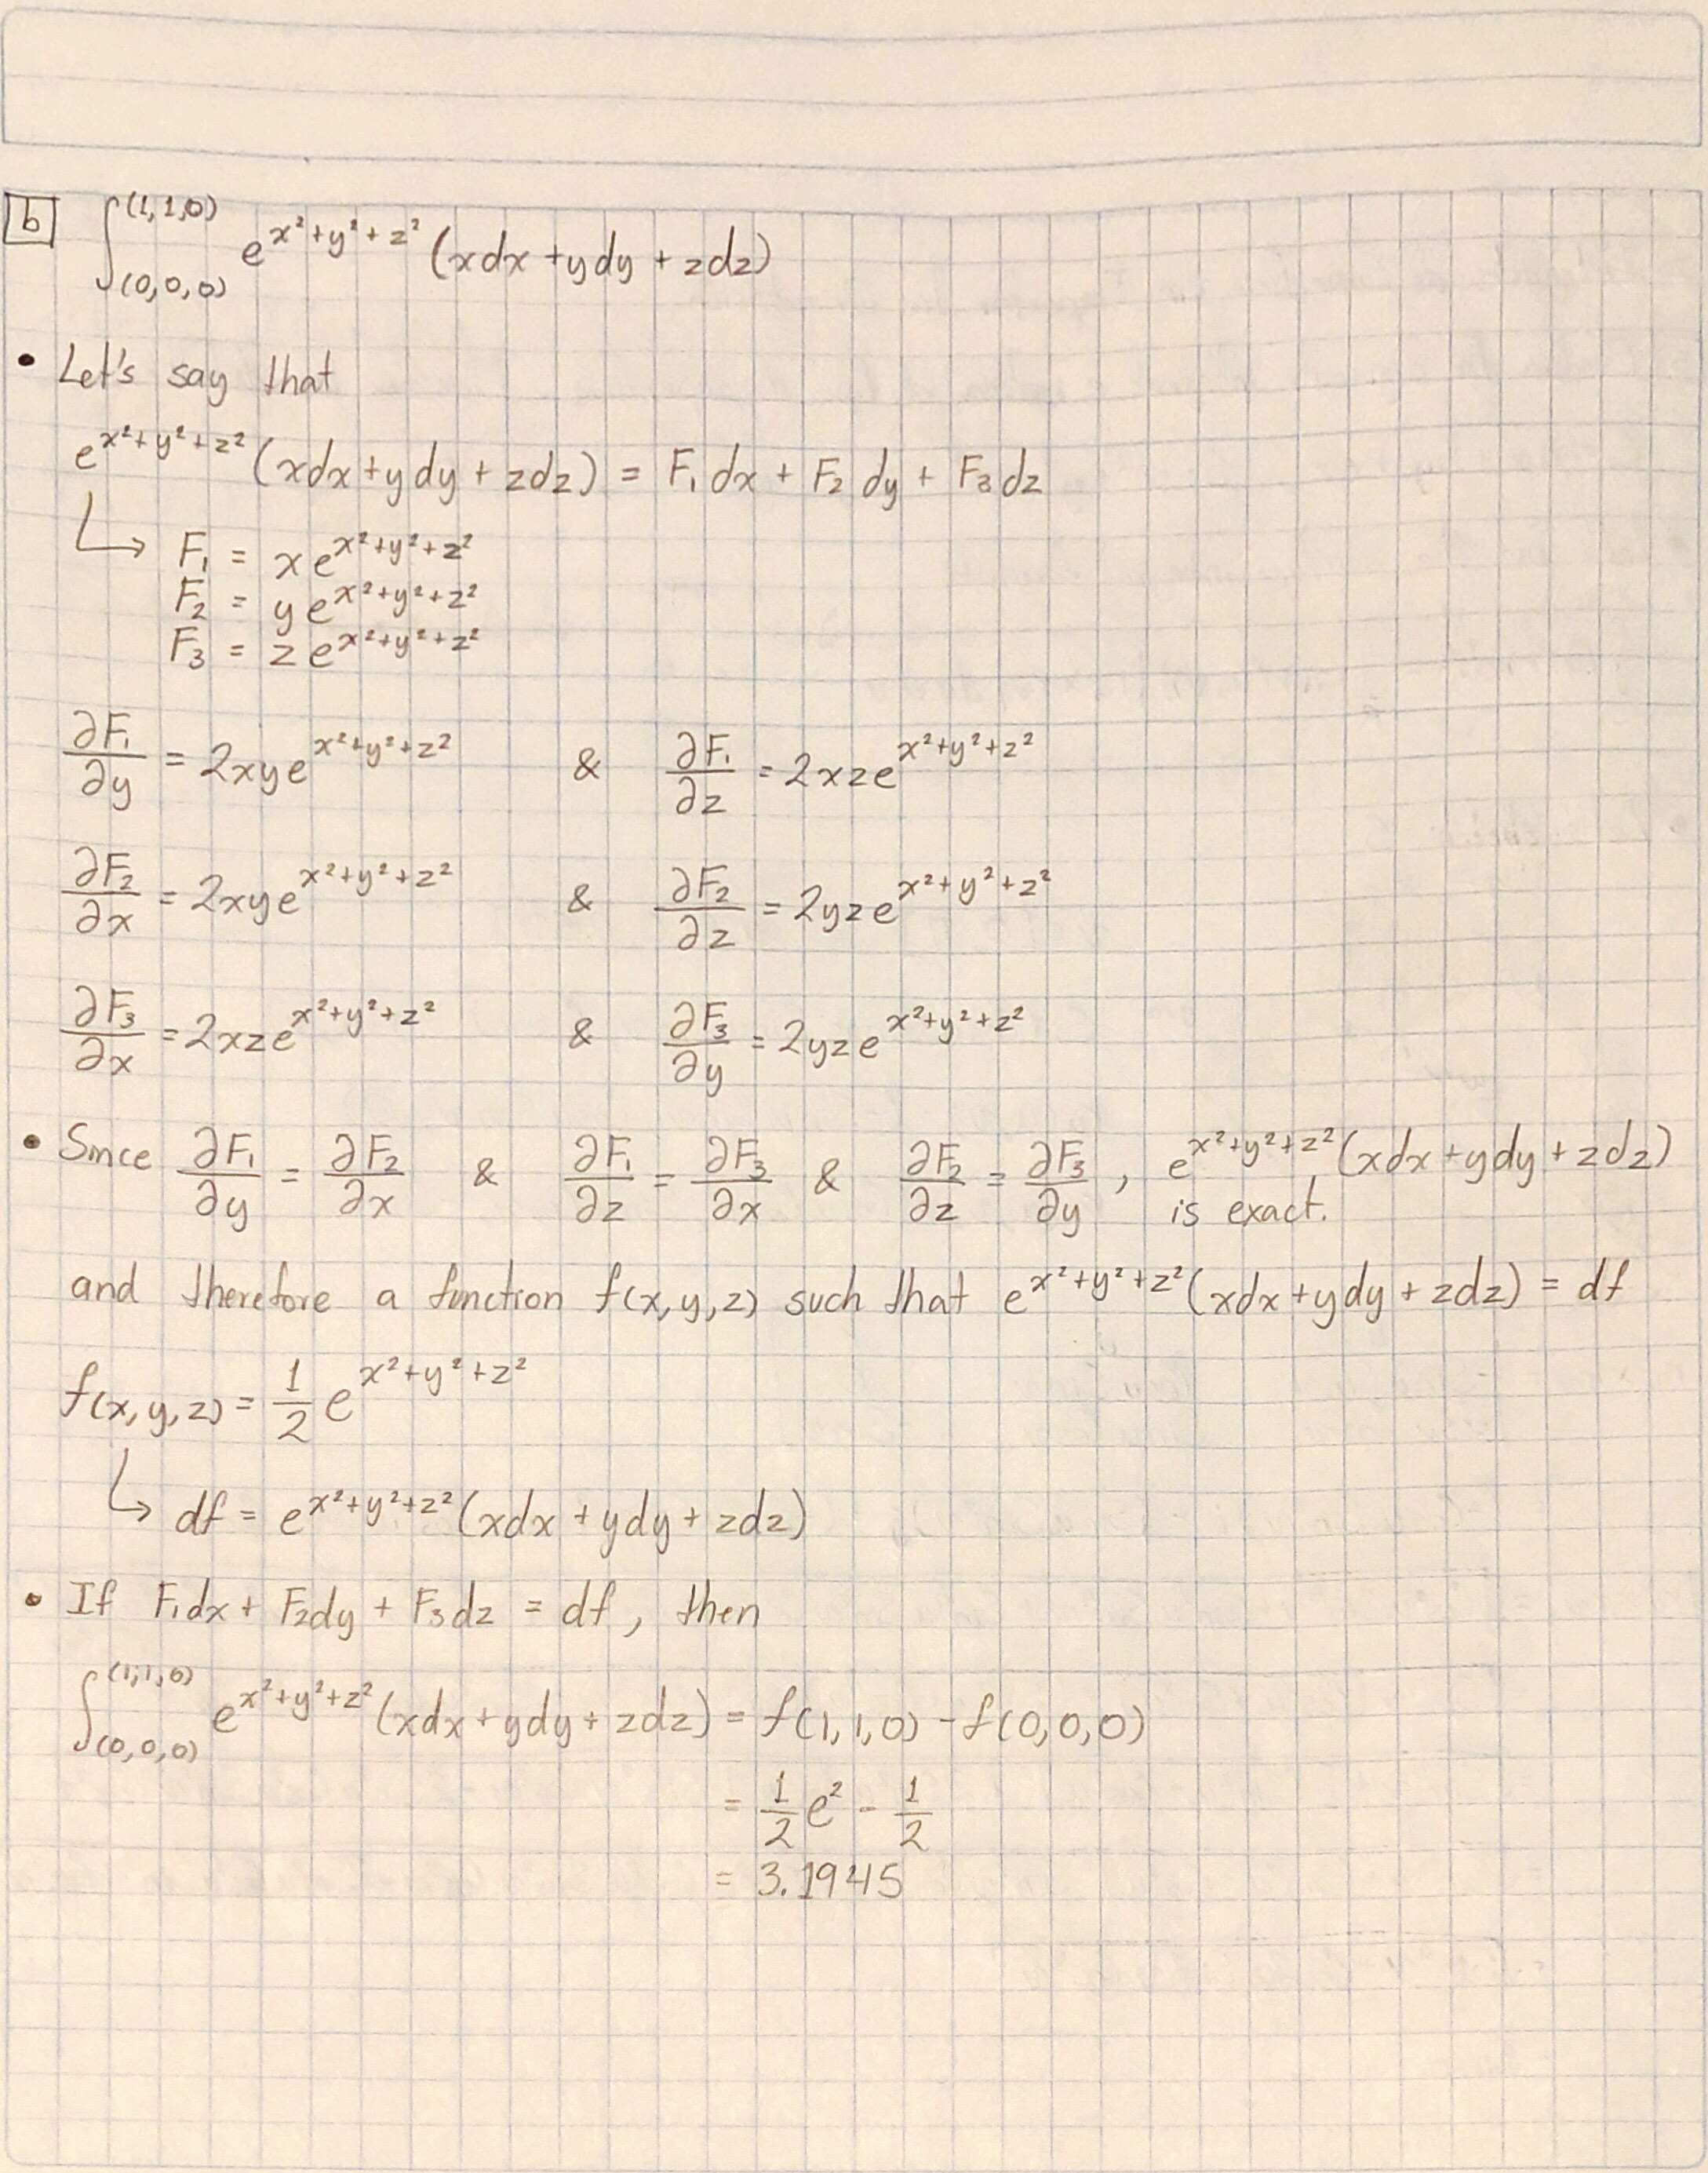 b ∫_(0,0,0)^(1,1,0) e^(x²+y²+z²) (xdx + ydy + zdz)
• Let's say that
e^(x²+y²+z²) (xdx + ydy + zdz) = F₁ dx + F₂ dy + F₃ dz
↳ F₁ = x e^(x²+y²+z²)
F₂ = y e^(x²+y²+z²)
F₃ = z e^(x²+y²+z²)
∂F₁/∂y = 2xye^(x²+y²+z²) & ∂F₁/∂z = 2xze^(x²+y²+z²)
∂F₂/∂x = 2xye^(x²+y²+z²) & ∂F₂/∂z = 2yze^(x²+y²+z²)
∂F₃/∂x = 2xze^(x²+y²+z²) & ∂F₃/∂y = 2yze^(x²+y²+z²)
• Since ∂F₁/∂y = ∂F₂/∂x & ∂F₁/∂z = ∂F₃/∂x & ∂F₂/∂z = ∂F₃/∂y , e^(x²+y²+z²) (xdx + ydy + zdz)
is exact.
and therefore a function f(x,y,z) such that e^(x²+y²+z²) (xdx + ydy + zdz) = df
f(x,y,z) = 1/2 e^(x²+y²+z²)
↳ df = e^(x²+y²+z²) (xdx + ydy + zdz)
• If F₁dx + F₂dy + F₃dz = df, then
∫_(0,0,0)^(1,1,0) e^(x²+y²+z²) (xdx + ydy + zdz) = f(1,1,0) - f(0,0,0)
= 1/2 e² - 1/2
= 3.1945